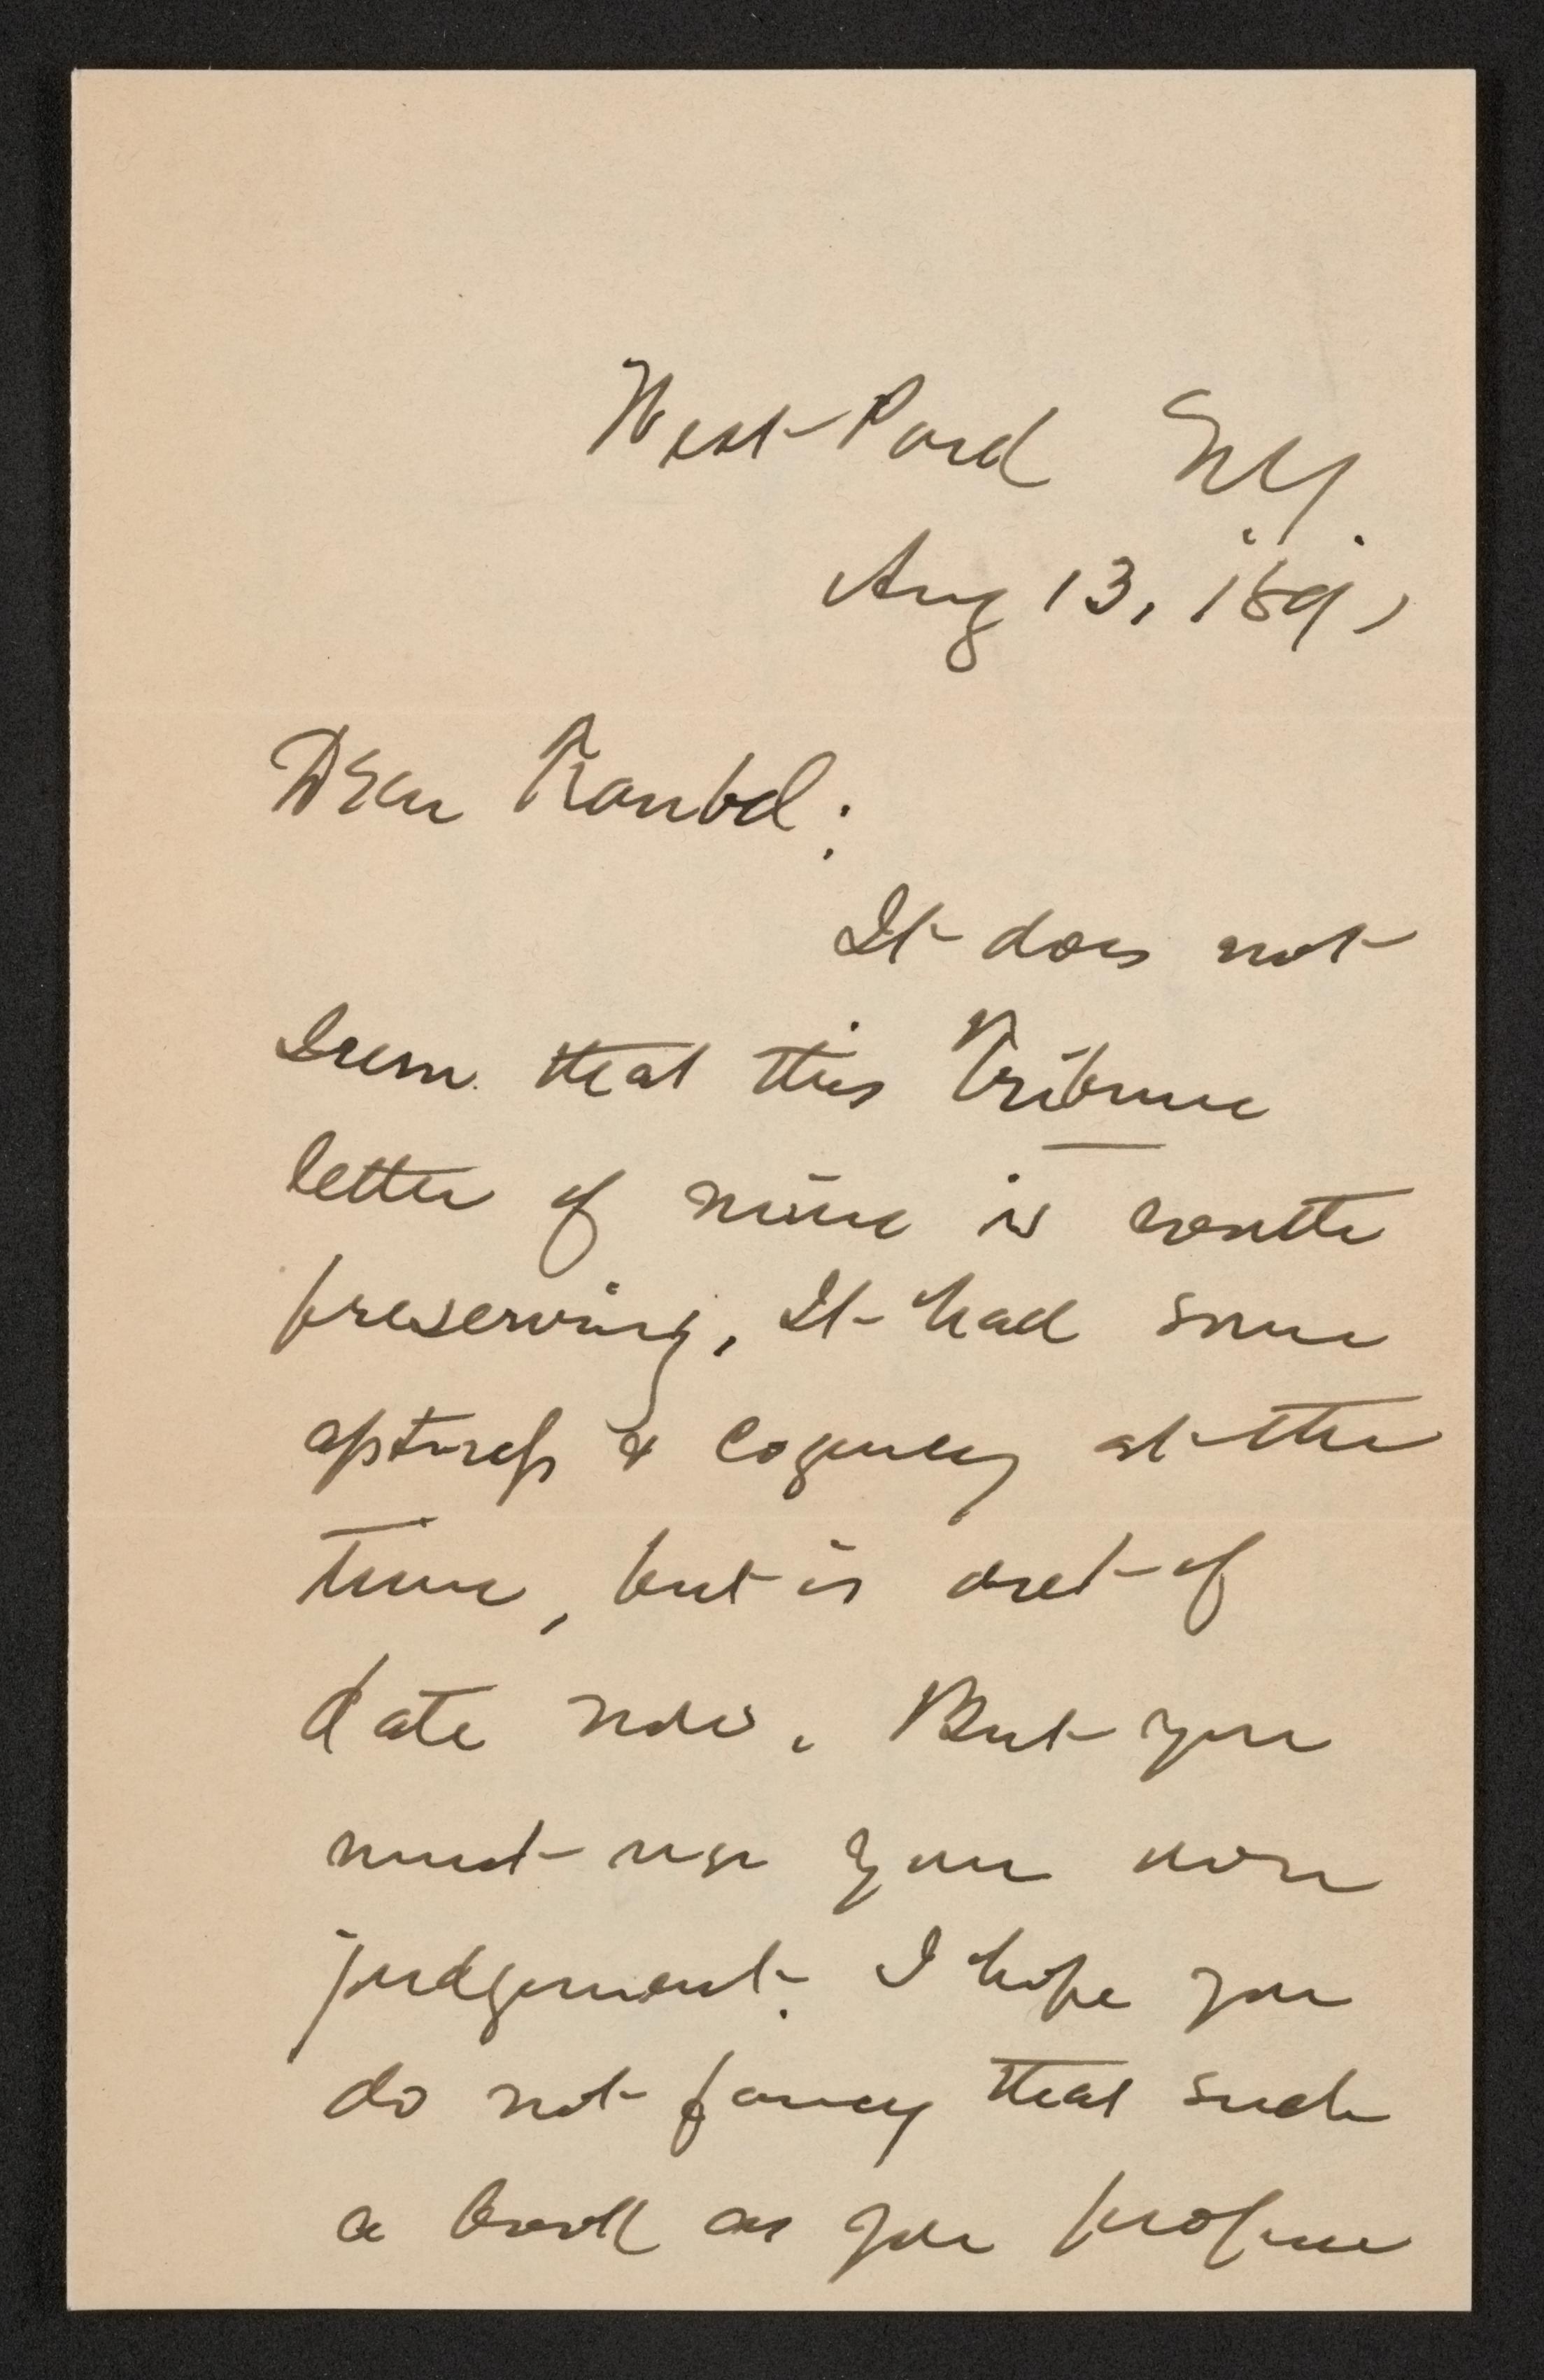 West Park N.Y.
Aug 13, 189
Dear Traubel:
It does not
seem that this Tribune
letter of mine is worth
preserving. It had some
aptness & cogency at the
time, but is out of
date now. But you
must use your own
judgement. I hope you
do not fancy that such
a book as you propose